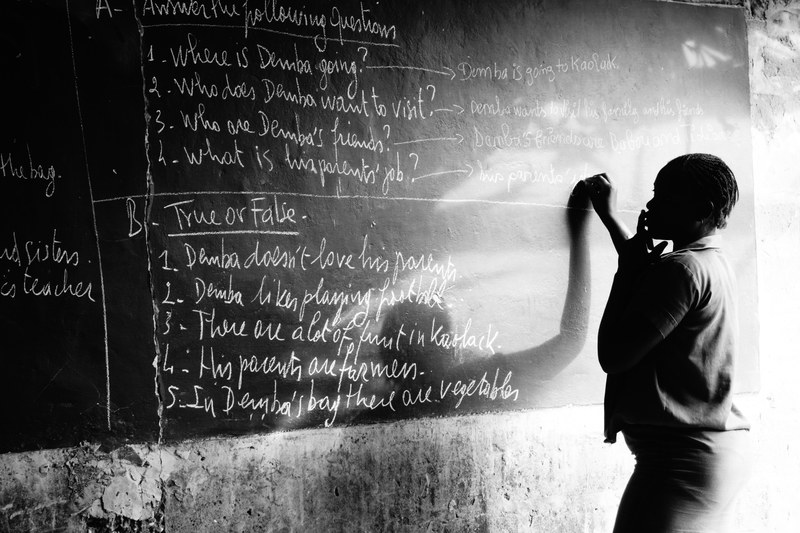 the bag.
sisters.
teacher
A- Answer the following Questions
1. Where is Demba going? → Demba is going to Kaolack.
2. Who does Demba want to visit? → wants to his and his
3. Who are Demba's friends? → Demba's friends are
4. What is his parents' job? → his parents'
B- True or False.
1. Demba doesn't love his parents.
2. Demba likes playing football.
3. There are a lot of fruit in Kaolack.
4. His parents are farmers.
5. In Demba's bag there are vegetables